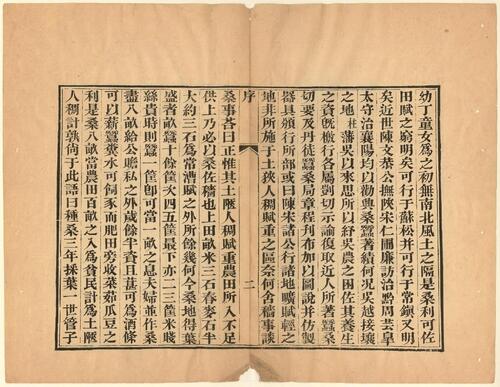 幼丁童女爲之初無南北風土之隔是桑利可佐
田賦之窮明矣可行于蘇松并可行于常鎭又明
矣近世陳文恭公撫陝宋仁圃廉訪治黔周芸皐
太守治襄陽均以勸興桑蠶著績何况吳越接壤
之地杜藩吳以來思所以紓吳農之困佐其養生
之資旣檄行各屬剴切示諭復取近人所著蠶桑
切要及丹徒蠶桑局章程刋布加以圖說并仿製
器具頒行所部或曰陳宋諸公行諸地曠賦輕之
地非所施于土狹人稠賦重之區奈何舍穡事談
序 二
桑事荅曰正惟其土陿人稠賦重農田所入不足
供上乃必以桑佐穡也上田畝米三石春麥石半
大約三石爲常漕賦之外所餘幾何今桑地得葉
盛者畝蠶十餘筐次四五筐最下亦二三筐米賤
絲貴時則蠶一筐卽可當一畝之息夫婦並作桑
盡八畝給公贍私之外歲餘半資且葚可爲酒條
可以薪蠶糞水可飼豕而肥田旁收菜茹瓜豆之
利是桑八畝當農田百畝之入爲貧民計爲土陿
人稠計孰尙于此語曰種桑三年採葉一世管子